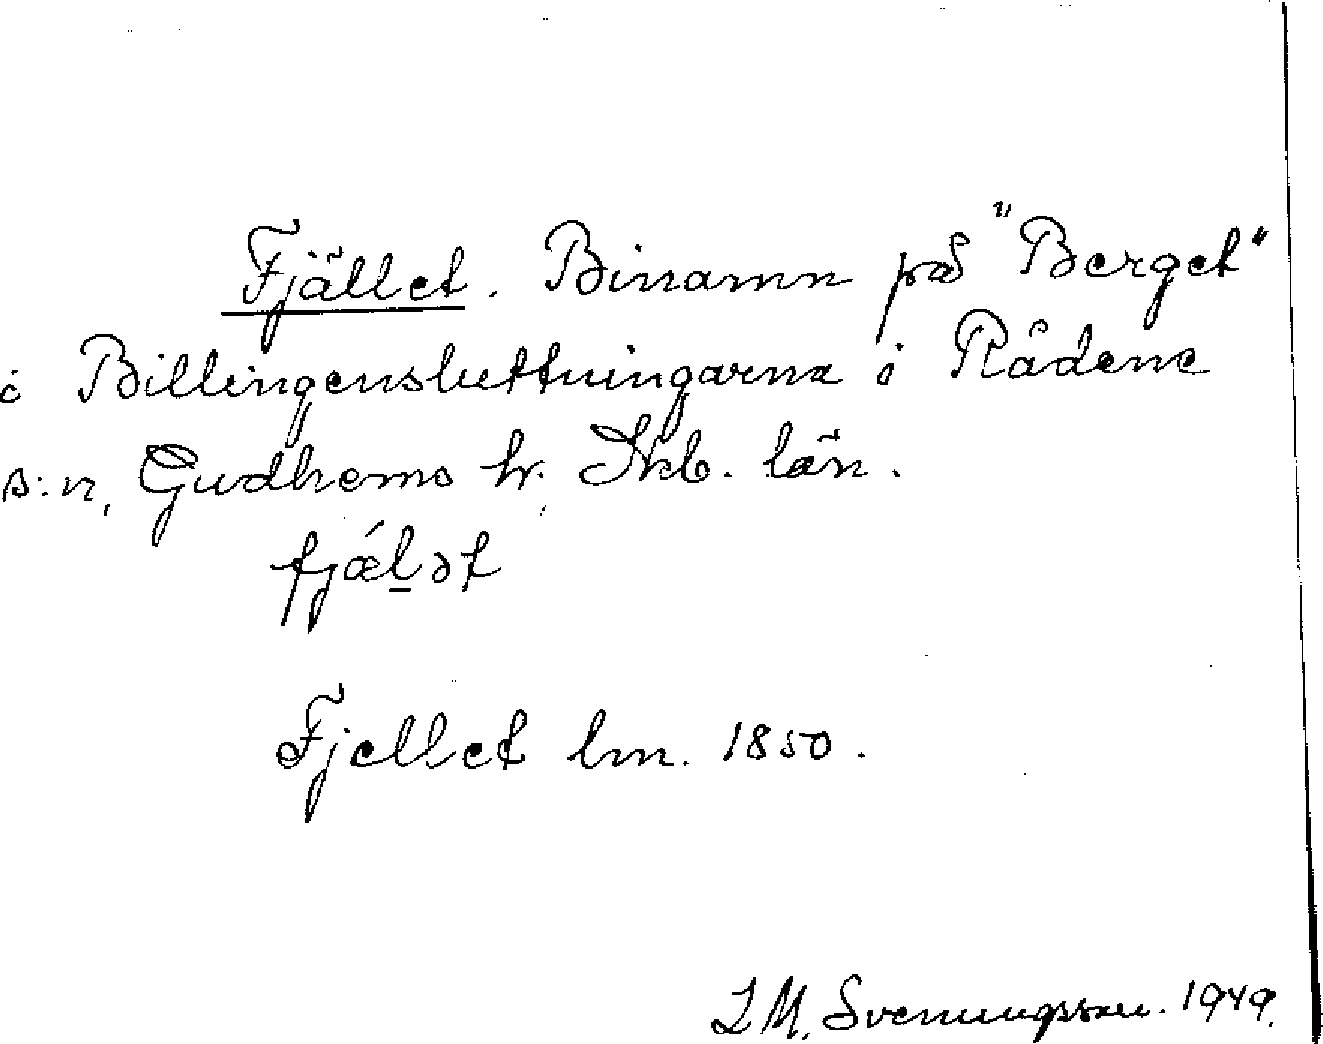 Fjället. Binamn på "Berget"
i Billingensluttningarna i Rådene
s:n, Gudhems hr. Skb. län.
fjǽl̲ət
Fjellet lm. 1850.
I M. Svenungsson. 1949.